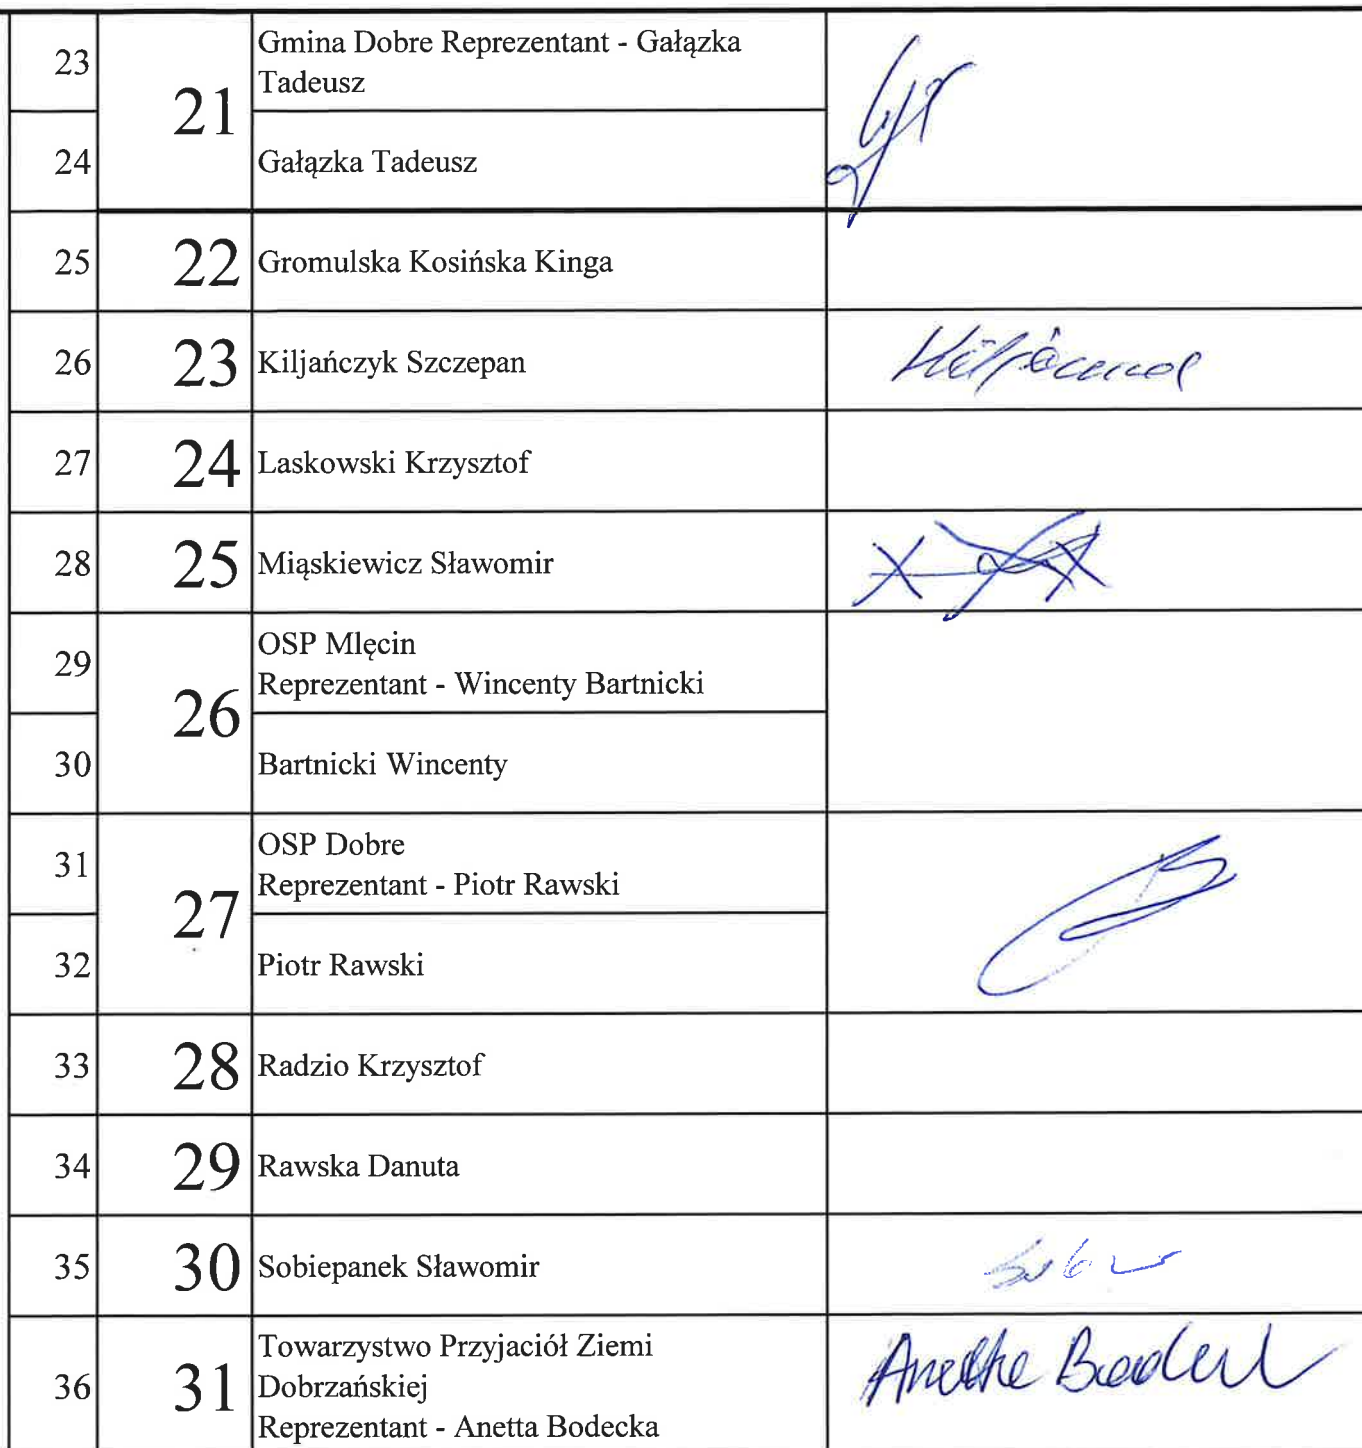 23
21
Gmina Dobre Reprezentant - Gałązka
Tadeusz
24
Gałązka Tadeusz
25
22
Gromulska Kosińska Kinga
26
23
Kiljańczyk Szczepan
27
24
Laskowski Krzysztof
28
25
Miąskiewicz Sławomir
29
26
OSP Mlęcin
Reprezentant - Wincenty Bartnicki
30
Bartnicki Wincenty
31
27
OSP Dobre
Reprezentant - Piotr Rawski
32
Piotr Rawski
33
28
Radzio Krzysztof
34
29
Rawska Danuta
35
30
Sobiepanek Sławomir
36
31
Towarzystwo Przyjaciół Ziemi
Dobrzańskiej
Reprezentant - Anetta Bodecka